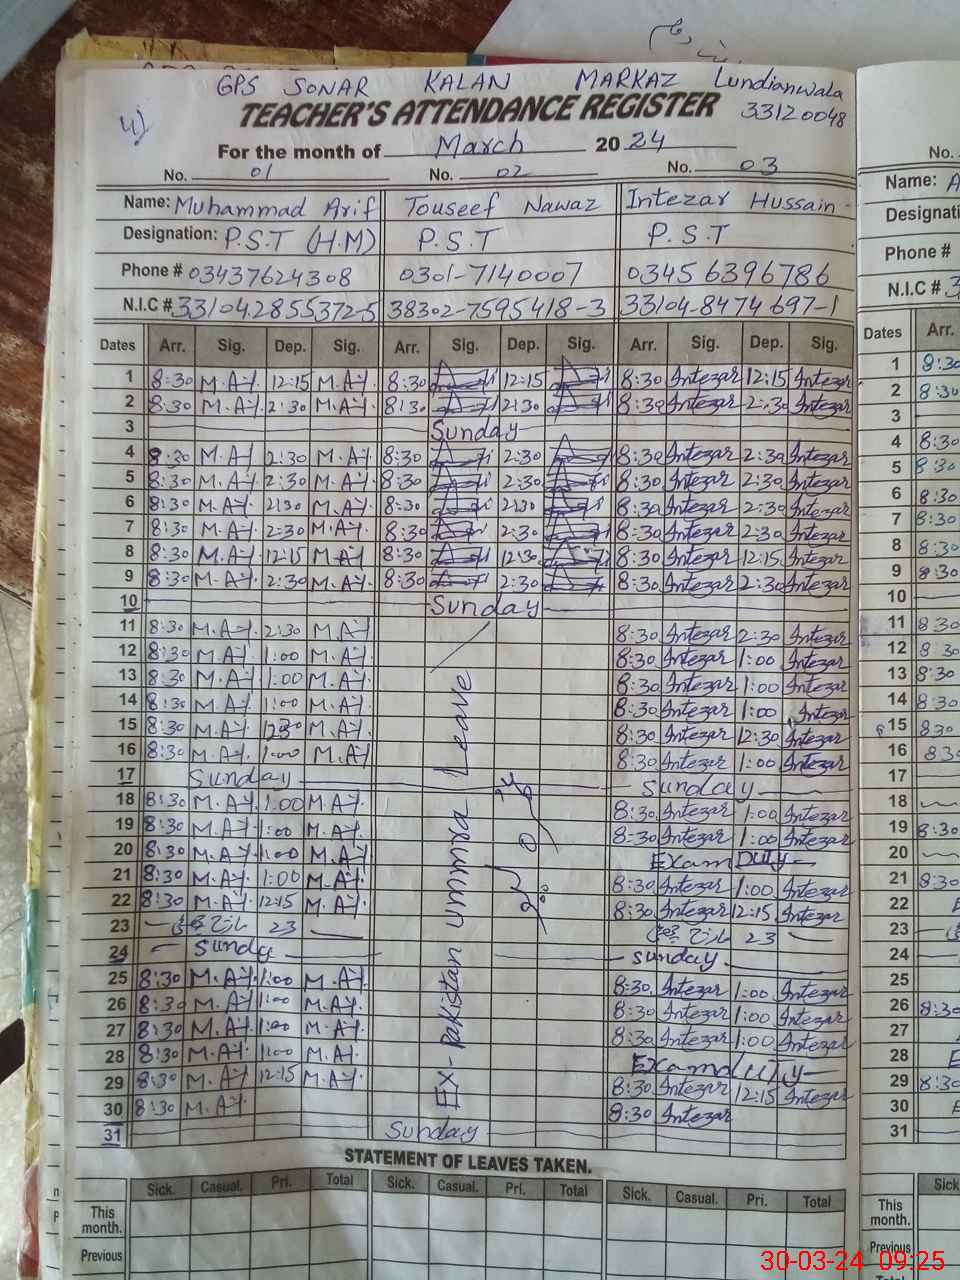 GPS SONAR KALAN MARKAZ Lundianwala
TEACHER'S ATTENDANCE REGISTER 33120048
4)
For the month of March 20 24
No. 01 No. 02 No. 03 No.
Name: Muhammad Arif Touseef Nawaz Intezar Hussain Name: A
Designation: P.S.T (H.M) P.S.T P.S.T Designati
Phone # 03437624308 0301-7140007 03456396786 Phone #
N.I.C # 331042855372-5 38302-7595418-3 33104-8474697-1 N.I.C # 3
Dates Arr. Sig. Dep. Sig. Arr. Sig. Dep. Sig. Arr. Sig. Dep. Sig. Dates Arr.
1 8:30 M.A 12:15 M.A 8:30 12:15 8:30 Intezar 12:15 Intezar 1 8:30
2 8:30 M.A 2:30 M.A 8:30 2:30 8:30 Intezar 2:30 Intezar 2 8:30
3 Sunday 3
4 8:30 M.A 2:30 M.A 8:30 2:30 8:30 Intezar 2:30 Intezar 4 8:30
5 8:30 M.A 2:30 M.A 8:30 2:30 8:30 Intezar 2:30 Intezar 5 8:30
6 8:30 M.A 2:30 M.A 8:30 2:30 8:30 Intezar 2:30 Intezar 6 8:30
7 8:30 M.A 2:30 M.A 8:30 2:30 8:30 Intezar 2:30 Intezar 7 8:30
8 8:30 M.A 12:15 M.A 8:30 12:30 8:30 Intezar 12:15 Intezar 8 8:30
9 8:30 M.A 2:30 M.A 8:30 2:30 8:30 Intezar 2:30 Intezar 9 8:30
10 Sunday 10
11 8:30 M.A 2:30 M.A 8:30 Intezar 2:30 Intezar 11 8:30
12 8:30 M.A 1:00 M.A 8:30 Intezar 1:00 Intezar 12 8:30
13 8:30 M.A 1:00 M.A 8:30 Intezar 1:00 Intezar 13 8:30
14 8:30 M.A 1:00 M.A 8:30 Intezar 1:00 Intezar 14 8:30
15 8:30 M.A 1230 M.A 8:30 Intezar 12:30 Intezar 15 8:30
16 8:30 M.A 1:00 M.A 8:30 Intezar 1:00 Intezar 16 8:30
17 Sunday Sunday 17
18 8:30 M.A 1:00 M.A 8:30 Intezar 1:00 Intezar 18
19 8:30 M.A 1:00 M.A 8:30 Intezar 1:00 Intezar 19 8:30
20 8:30 M.A 1:00 M.A Exam Duty 20
21 8:30 M.A 1:00 M.A 8:30 Intezar 1:00 Intezar 21 8:30
22 8:30 M.A 12:15 M.A 8:30 Intezar 12:15 Intezar 22
23 23 مارچ 23 مارچ 23
24 Sunday sunday 24
25 8:30 M.A 1:00 M.A 8:30 Intezar 1:00 Intezar 25
26 8:30 M.A 1:00 M.A 8:30 Intezar 1:00 Intezar 26 8:30
27 8:30 M.A 1:00 M.A 8:30 Intezar 1:00 Intezar 27
28 8:30 M.A 1:00 M.A Exam duty 28
29 8:30 M.A 12:15 M.A 8:30 Intezar 12:15 Intezar 29 8:30
30 8:30 M.A 8:30 Intezar 30
31 Sunday 31
Ex-Pakistan ummra Leave
STATEMENT OF LEAVES TAKEN.
Sick. Casual. Pri. Total Sick. Casual. Pri. Total Sick. Casual. Pri. Total Sick
This month. This month.
Previous Previous
30-03-24 09:25